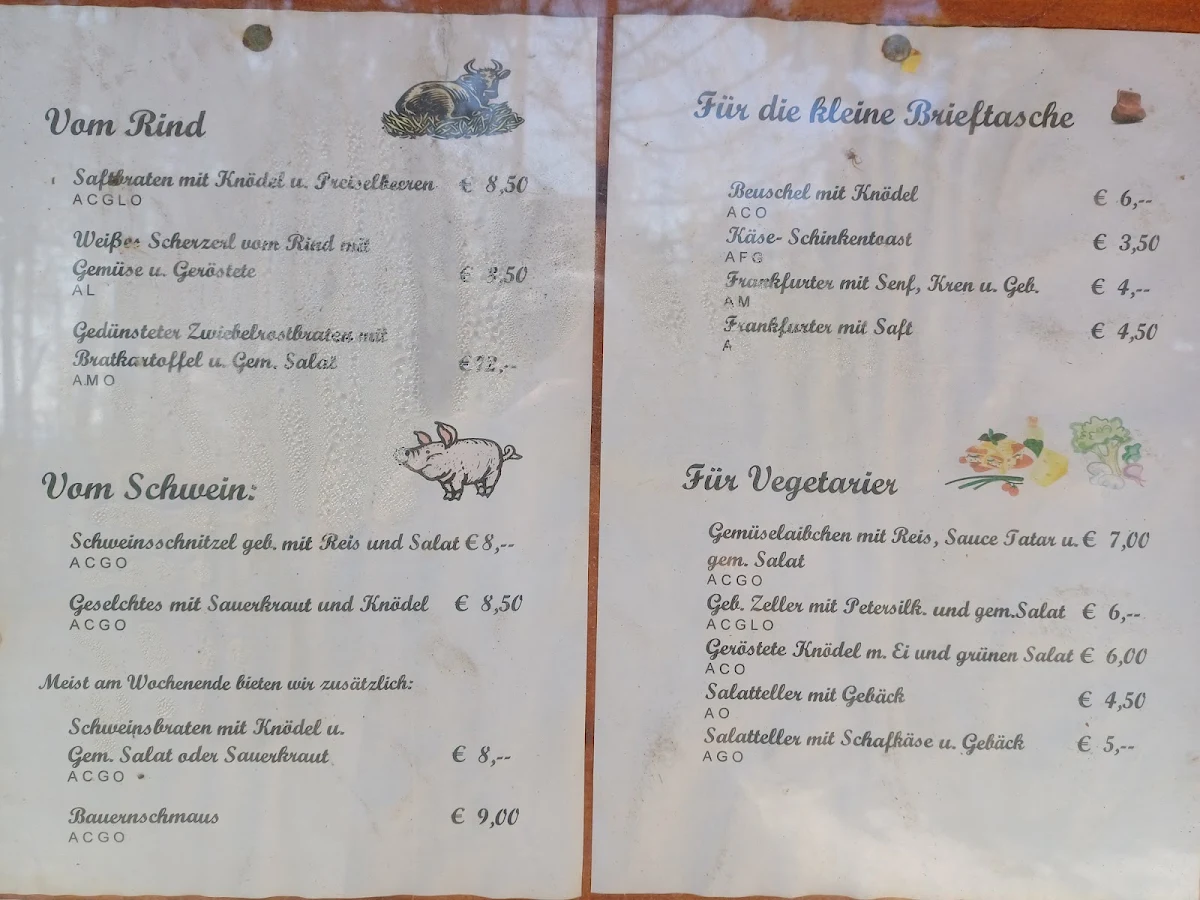 Vom Rind
Saftbraten mit Knödel u. Preiselbeeren € 8,50
ACGLO
Weißes Scherzerl vom Rind mit
Gemüse u. Geröstete €
AL
Gedünsteter Zwiebelrostbraten mit
Bratkartoffel u. Gem. Salat €12,--
AMO
Vom Schwein:
Schweinsschnitzel geb. mit Reis und Salat € 8,--
ACGO
Geselchtes mit Sauerkraut und Knödel € 8,50
ACGO
Meist am Wochenende bieten wir zusätzlich:
Schweinsbraten mit Knödel u.
Gem. Salat oder Sauerkraut € 8,--
ACGO
Bauernschmaus € 9,00
ACGO
Für die kleine Brieftasche
Beuschel mit Knödel € 6,--
ACO
Käse- Schinkentoast € 3,50
AFG
Frankfurter mit Senf, Kren u. Geb. € 4,--
AM
Frankfurter mit Saft € 4,50
A
Für Vegetarier
Gemüselaibchen mit Reis, Sauce Tatar u. € 7,00
gem. Salat
ACGO
Geb. Zeller mit Petersilk. und gem.Salat € 6,--
ACGLO
Geröstete Knödel m. Ei und grünen Salat € 6,00
ACO
Salatteller mit Gebäck € 4,50
AO
Salatteller mit Schafkäse u. Gebäck € 5,--
AGO